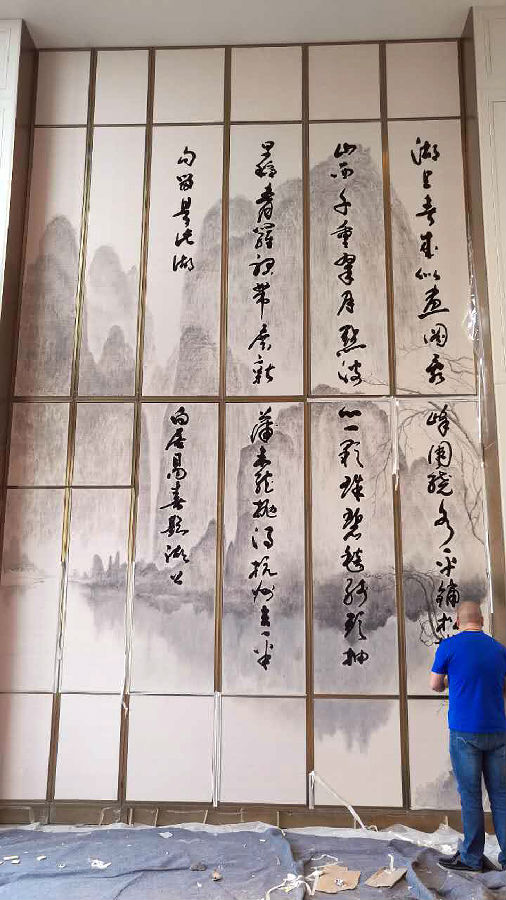 湖上春来似画图乱峰围绕水平铺松
山面千重翠月点波心一颗珠碧毯线头抽
早稻青羅裙带展新蒲未能抛得杭州去一半
勾留是此湖 白居易春题湖上